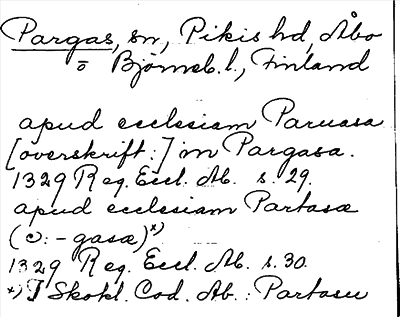 Pargas, sn, Pikis hd, Åbo
o Björneb. l., Finland
apud ecclesiam Paruasa
[overskrift:] in Pargasa.
1329 Reg. Eccl. Ab. s. 29.
apud ecclesiam Partasæ
(ɔ: -gasæ)*)
1329 Reg. Eccl. Ab. s. 30.
*) I Skokl. Cod. Ab.: Partasu